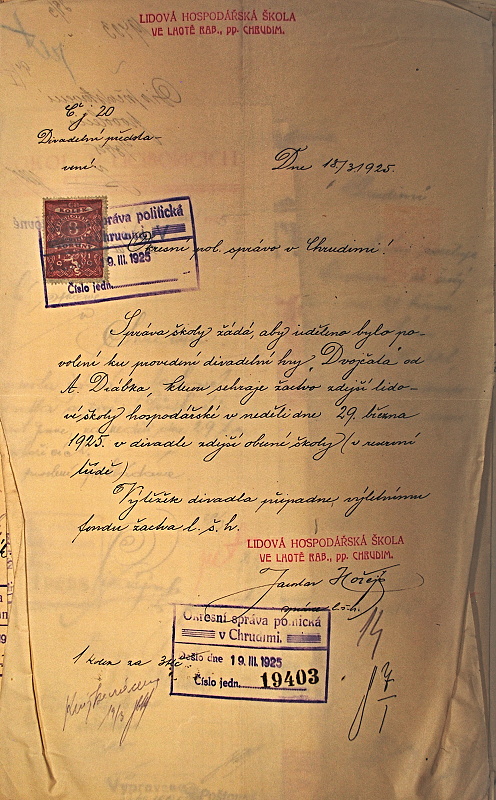 LIDOVÁ HOSPODÁŘSKÁ ŠKOLA
VE LHOTĚ RAB., pp. CHRUDIM.
Čj 20
Divadelní předsta-
vení.
Dne 18/3 1925.
KOLEK
3
práva politická
Chrudimi
9. III. 1925
Číslo jedn.
Okresní pol. správo v Chrudimi!
Správa školy žádá, aby uděleno bylo po-
volení ku provedení divadelní hry „Dvojčata" od
A. Drábka, kterou sehraje žactvo zdejší lido-
vé školy hospodářské v neděli dne 29. března
1925 v divadle zdejší obecné školy (v
Výtěžek divadla připadne výletnímu
fondu žactva l. š. h.
LIDOVÁ HOSPODÁŘSKÁ ŠKOLA
VE LHOTĚ RAB., pp. CHRUDIM.
Jaroslav
správce l. š. h.
14
Okresní správa politická
v Chrudimi.
Došlo dne 19. III. 1925
Číslo jedn. 19403
1 kolek za 3 Kč
19/3